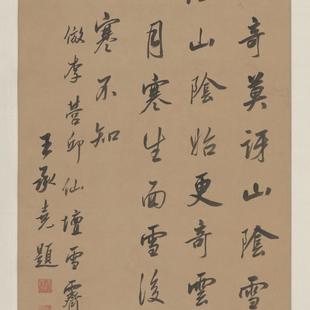 奇莫訝山陰雪
山陰始更奇雲
月寒生面雪後
寒不知
倣李營邱仙壇雪霽
王承堯題